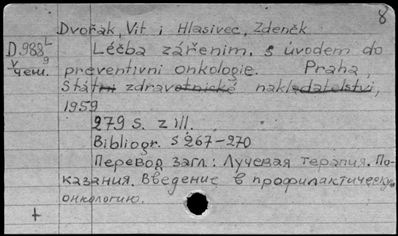 8
Dvořák, Vit i Hlasivec, Zdeněk
D.988 L 9 Léčba zářenim. s úvodem do
v čem. preventivni onkologie. Praha,
Státni zdravotnické nakladatelstvi,
1959
279 s. z ill.
Bibliogr. s 267-270
Перевод загл.: Лучевая терапия. По-
казания. Введение в профилактическую
онкологию.